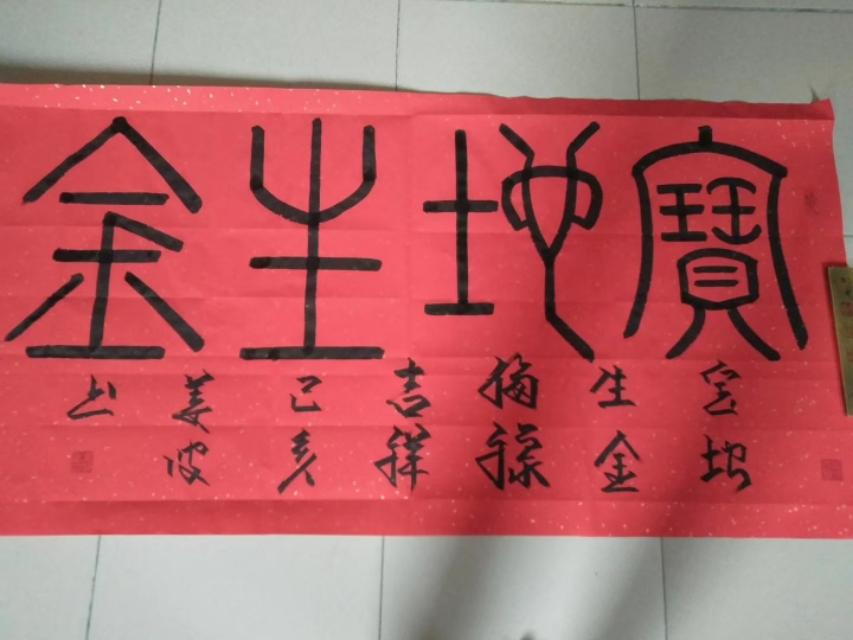 寶地生金
宝地
生金
福禄
吉祥
己亥
姜波
书